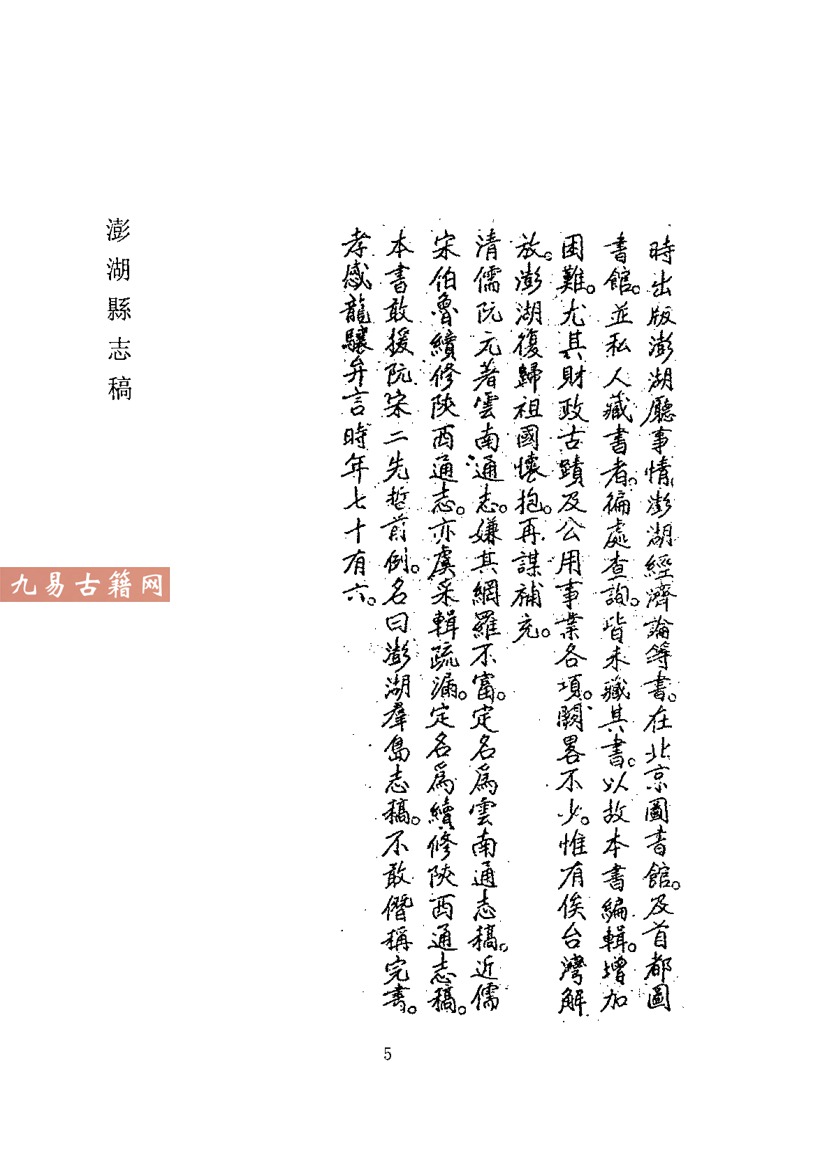 時出版澎湖廳事情,澎湖經濟論等書。在北京圖書館。及首都圖
書館。並私人藏書者。徧處查詢。皆未藏其書。以故本書編輯。增加
困難。尤其財政古蹟及公用事業各項。闕畧不少。惟有俟台灣解
放。澎湖復歸祖國懷抱。再謀補充。
清儒阮元著雲南通志。嫌其網羅不富。定名爲雲南通志稿。近儒
宋伯魯續修陝西通志。亦虞采輯疏漏。定名爲續修陝西通志稿。
本書敢援阮宋二先哲前例。名曰澎湖羣島志稿。不敢僭稱完書。
孝感龍驤弁言時年七十有六。
澎湖縣志稿
九易古籍网
5